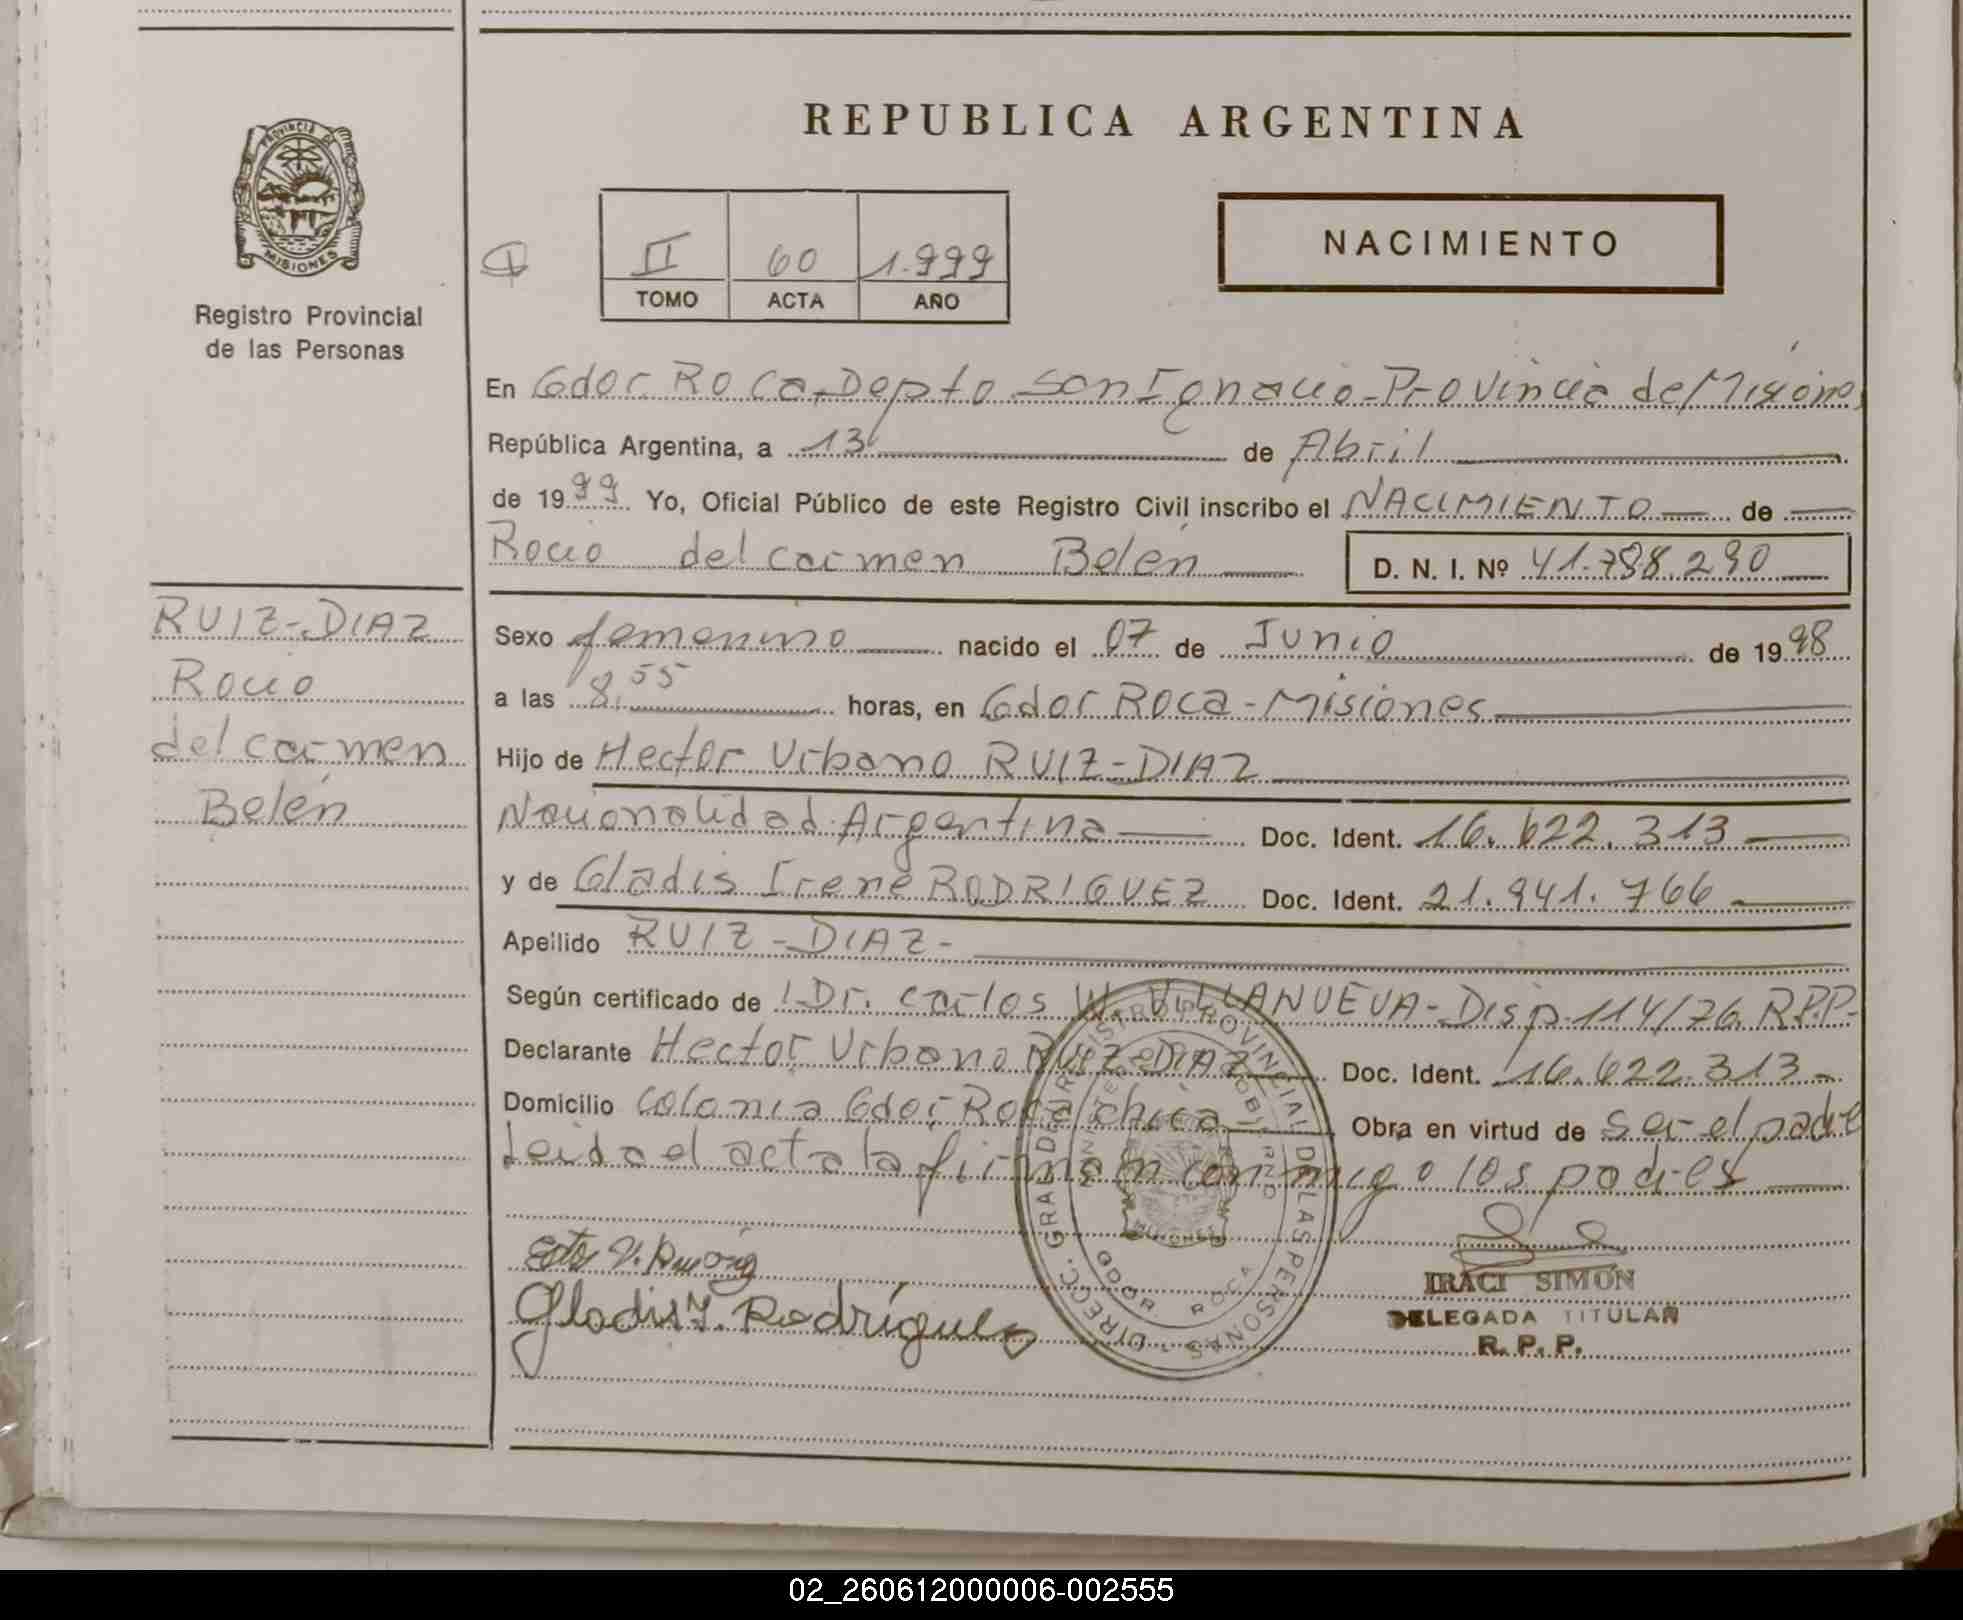 REPUBLICA ARGENTINA
PROVINCIA DE MISIONES
Registro Provincial
de las Personas
II 60 1.999
TOMO ACTA AÑO
NACIMIENTO
En Gdor. Roca, Depto San Ignacio - Provincia de Misiones
República Argentina, a 13 de Abril
de 1999 Yo, Oficial Público de este Registro Civil inscribo el NACIMIENTO de
Rocio del carmen Belén D. N. I. Nº 41.788.290
RUIZ-DIAZ
Rocio
del carmen
Belén
Sexo femenino nacido el 07 de Junio de 1998
a las 8,55 horas, en Gdor Roca - Misiones
Hijo de Hector Urbano RUIZ-DIAZ
Nacionalidad Argentina Doc. Ident. 16.622.313
y de Gladis Irene RODRIGUEZ Doc. Ident. 21.941.766
Apellido RUIZ-DIAZ-
Según certificado de Dr. Carlos W. VILLANUEVA - Disp. 114/76 R.P.P-
Declarante Hector Urbano RUIZ-DIAZ Doc. Ident. 16.622.313
Domicilio Colonia Gdor Roca/chica Obra en virtud de Ser el padre
Leida el acta la firman conmigo los padres
DIRECC. GRAL DEL REGISTRO PROVINCIAL DE LAS PERSONAS
MINISTERIO DE GOBIERNO
MISIONES
GDOR ROCA
Gladis I. Rodríguez
IRACI SIMON
DELEGADA TITULAR
R. P. P.
02_260612000006-002555